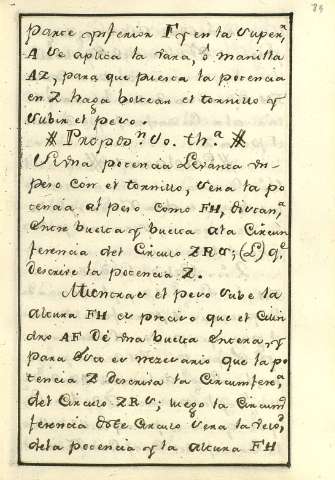 84
parte ynferior F y en la super.ⁿ
A se aplica la vara, ó manilla
AZ, para que puesta la potencia
en Z haga boltear el tornillo y
subir el peso.
Propos.ⁿ 20. th.ª
Si vna potencia levanta vn
peso con el tornillo, sera la po
tencia al peso como FH, distan.ª
entre buelta y buelta ala circun
ferencia del circulo ZRS; (L) q.ᵉ
descrive la potencia Z.
Mientras el peso sube la
altura FH es preciso que el cilin
dro AF dé vna buelta entera, y
para esto es nezesario que la po
tencia Z descriva la circumfere.ª
del circulo ZRS; luego la circumf
ferencia deste circulo sera la velo.ᵈ
dela potencia y la altura FH